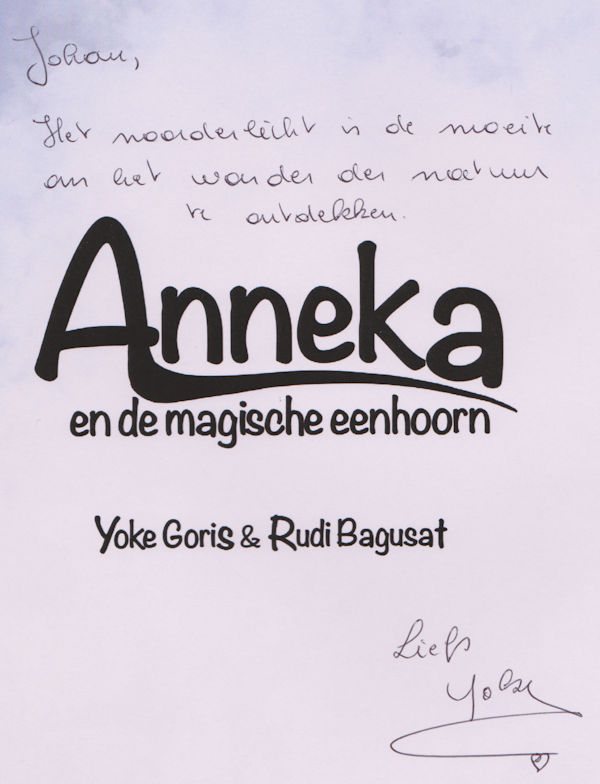 Johan,
Het noorderlicht is de moeite
om het wonder der natuur
te ontdekken.
Anneka
en de magische eenhoorn
Yoke Goris & Rudi Bagusat
Liefs
Yoke